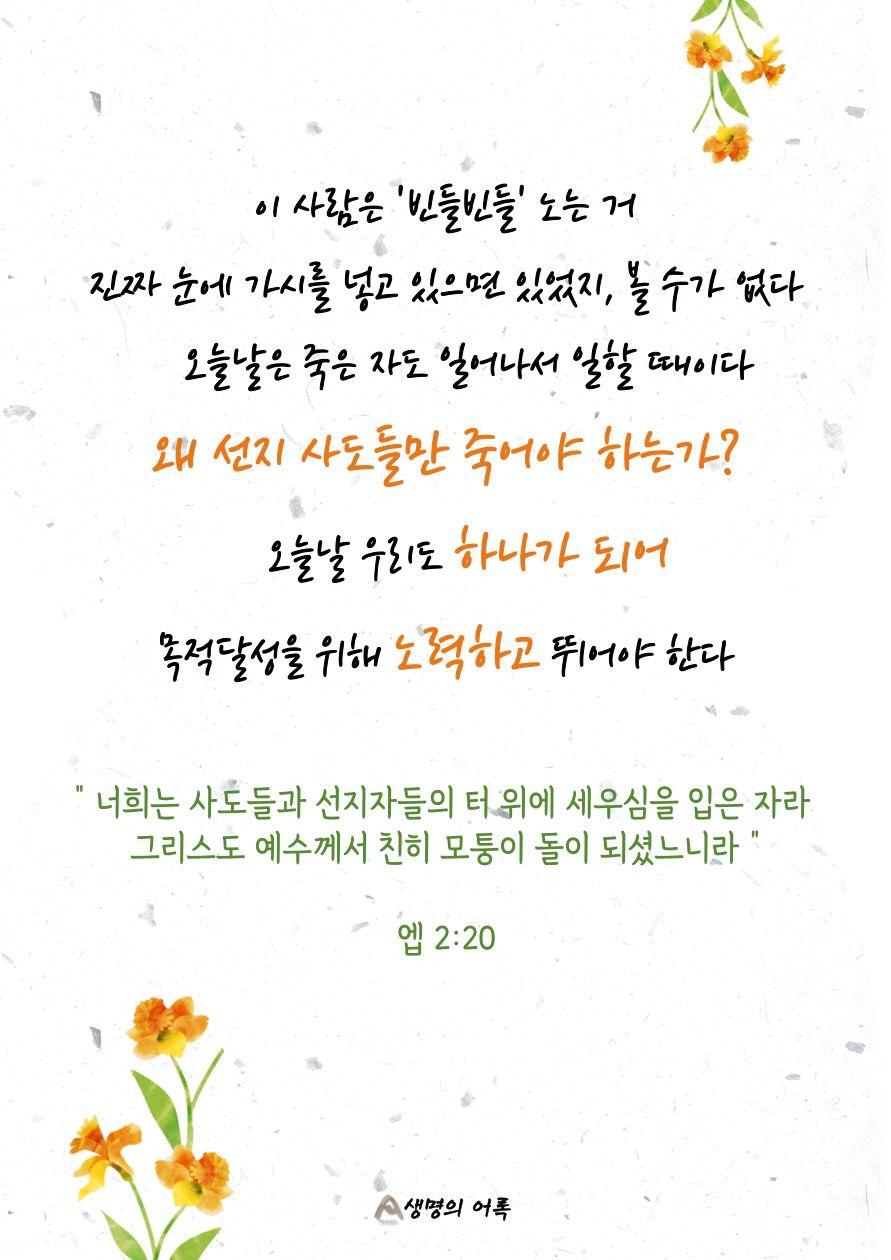 이 사람은 '빈들빈들' 노는 거
진짜 눈에 가시를 넣고 있으면 있었지, 볼 수가 없다
오늘날은 죽은 자도 일어나서 일할 때이다
왜 선지 사도들만 죽어야 하는가?
오늘날 우리도 하나가 되어
목적달성을 위해 노력하고 뛰어야 한다
" 너희는 사도들과 선지자들의 터 위에 세우심을 입은 자라
그리스도 예수께서 친히 모퉁이 돌이 되셨느니라 "
엡 2:20
생명의 어록